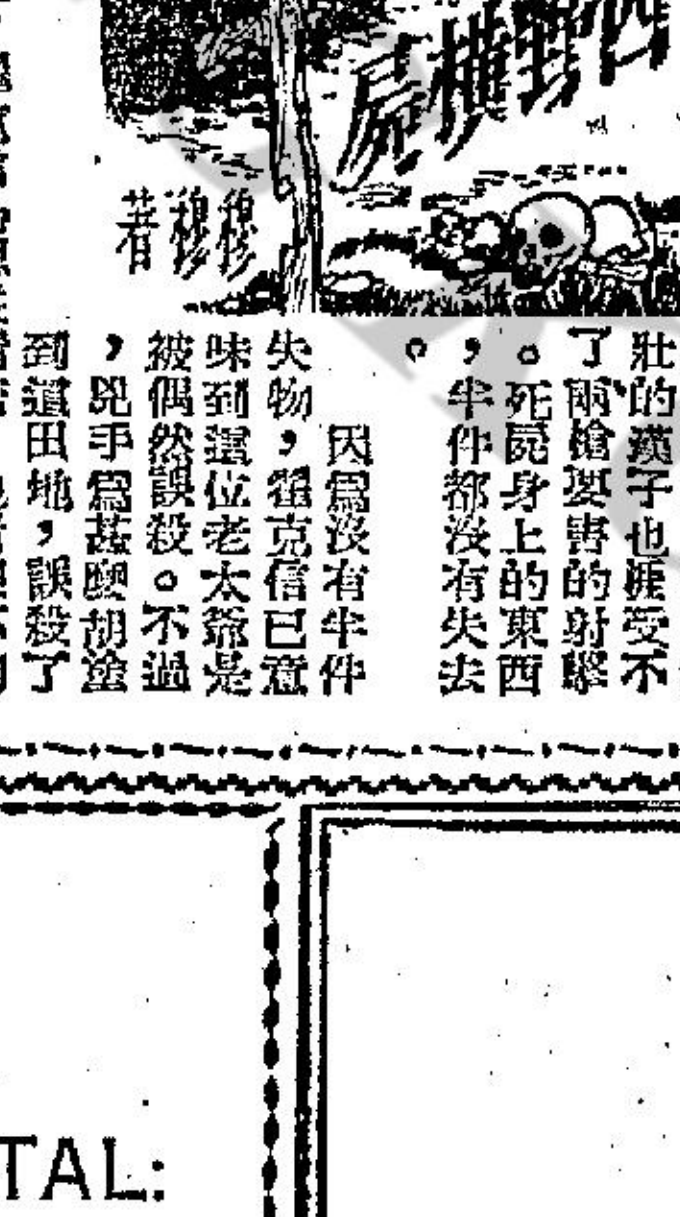 西野橫屍
穆穆著
壯的漢子也捱受不
了兩槍要害的射擊
。死屍身上的東西
，半件都沒有失去
。
因爲沒有半件
失物，翟克信已意
味到這位老太爺是
被偶然誤殺。不過
，兇手爲甚麼胡塗
到這田地，誤殺了
TAL: